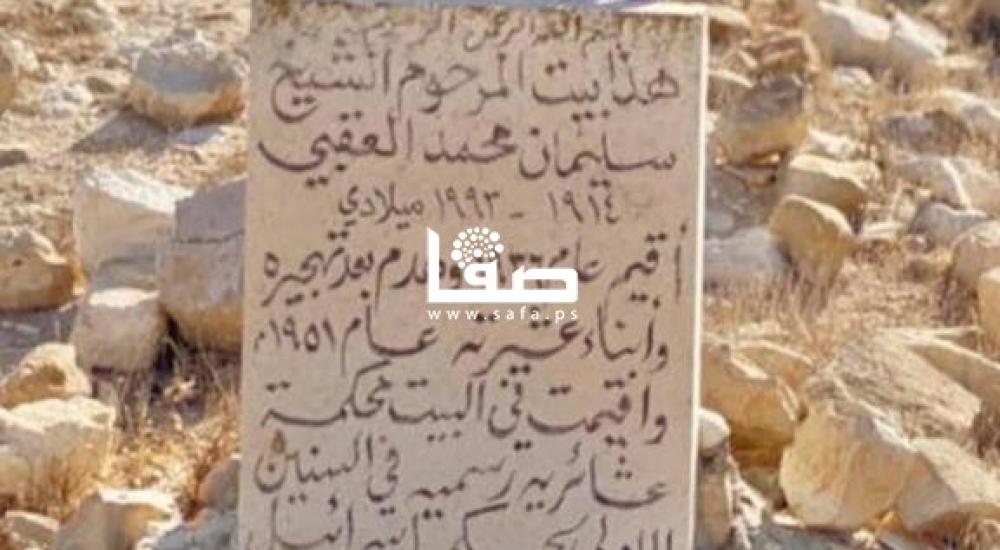 بسم الله الرحمن الرحيم
هذا بيت المرحوم الشيخ
سليمان محمد العقبي
١٩١٤ - ١٩٩٣ ميلادي
أقيم عام وهدم بعد تهجيره
وأبناء عشيرته عام ١٩٥١م
واقيمت في البيت محكمة
عشائرية رسمية في السنين
الاولى لحكم اسرائيل
صفا
www.safa.ps